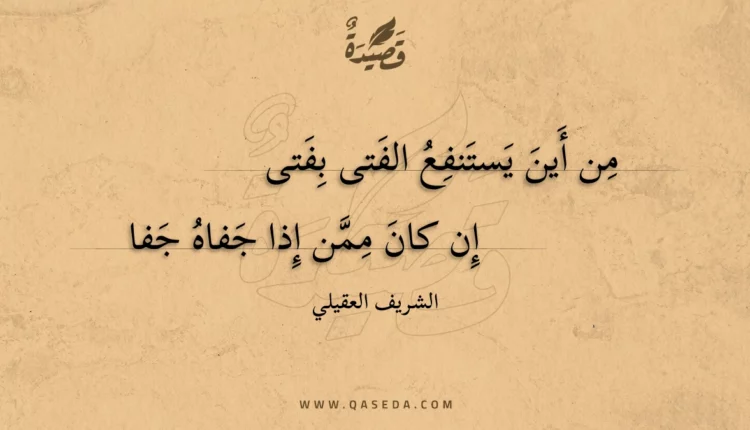 قَصِيدَةٌ
مِن أَينَ يَستَنفِعُ الفَتى بِفَتى
إِن كانَ مِمَّن إِذا جَفاهُ جَفا
الشريف العقيلي
WWW.QASEDA.COM